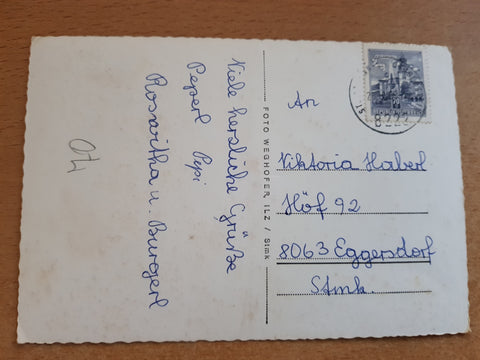 Viele herzliche Grüße
Peperl Pepi
Roswitha u. Burgerl
04
FOTO WEGHOFER, ILZ / Stmk
8223
An
Viktoria Haberl
Höf 92
8063 Eggersdorf
Stmk.